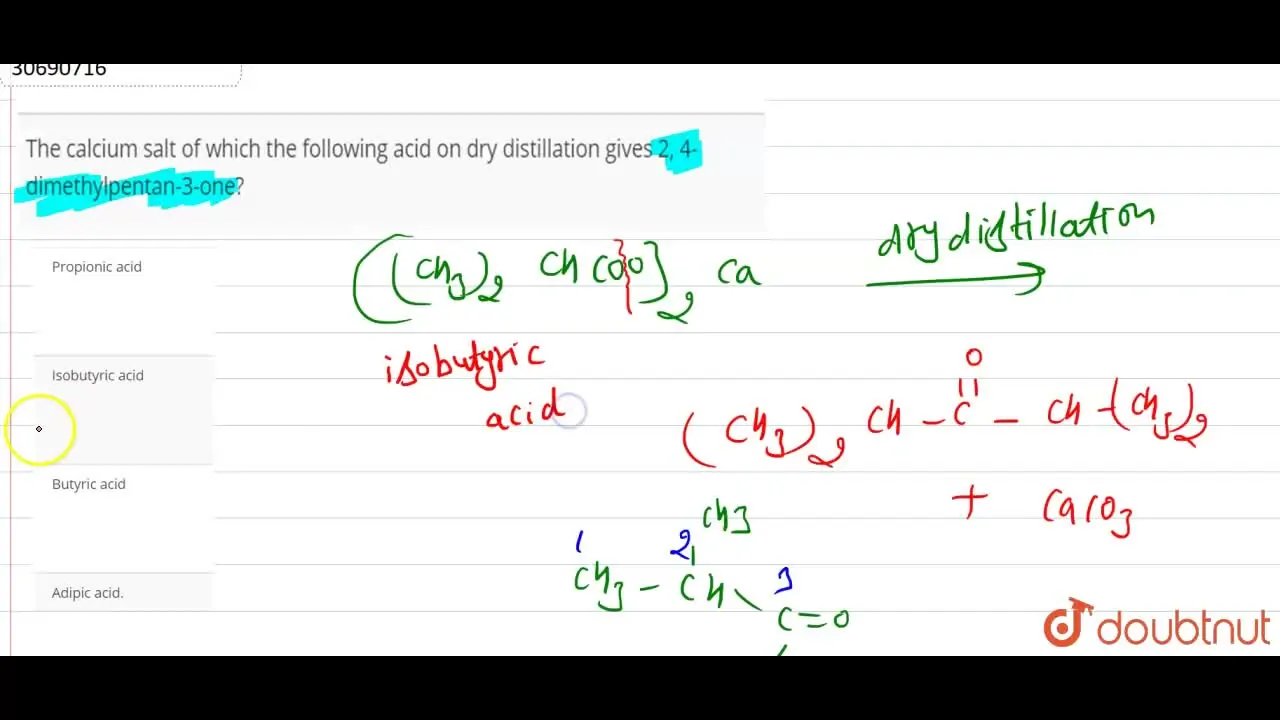 30690716
The calcium salt of which the following acid on dry distillation gives 2, 4-
dimethylpentan-3-one?
Propionic acid
Isobutyric acid
Butyric acid
Adipic acid.
((CH3)2 CH COO]2 Ca
dry distillation
isobutyric
acid
O
(CH3)2 CH - C - CH - (CH3)2
+ CaCO3
CH3
1 2 3
CH3 - CH
C=O
doubtnut